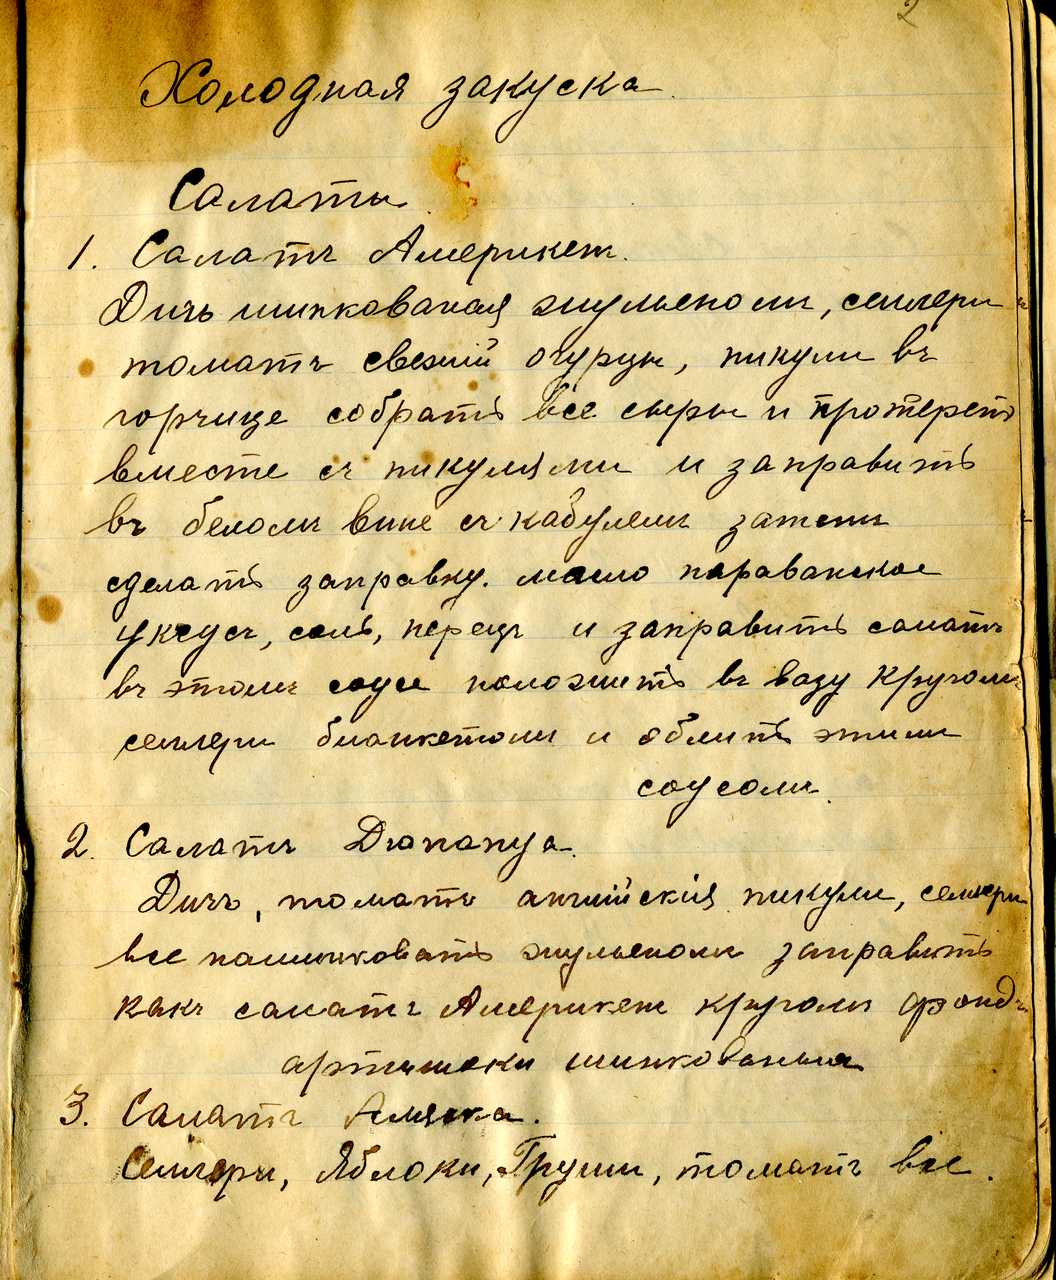 2
Холодная закуска
Салаты
1. Салатъ Америкен.
Дичь шинкованая жульеномъ, селлери
томатъ свежiй огурцы, пикули въ
горчице собрать все сыры и протереть
вместе съ пикулями и заправить
въ беломъ вине съ кабулемъ затемъ
сделать заправку. масло прованское
уксусъ, соль, перецъ и заправить салатъ
въ этомъ соусе положить въ вазу кругомъ
селлери бланкетомъ и облить этимъ
соусомъ.
2. Салатъ Дюпануа.
Дичь, томатъ англiйскiя пикули, селлери
все нашинковать жульеномъ заправить
какъ салатъ Америкен кругомъ фондъ
артишоки шинкованыя
3. Салатъ Аляска.
Селлери, Яблоки, Груши, томатъ все.